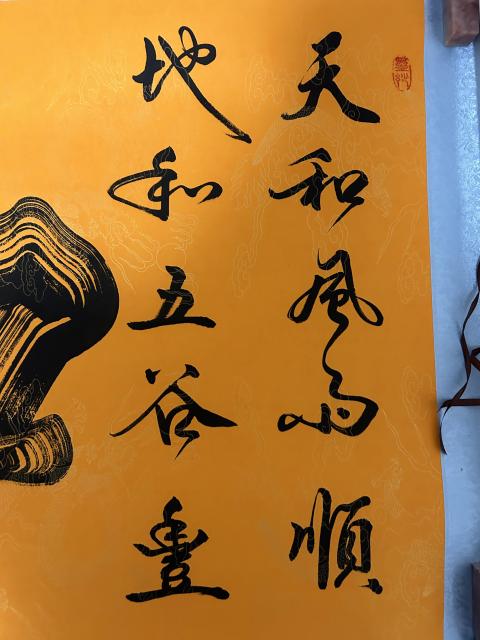 天和風雨順
地和五谷豊